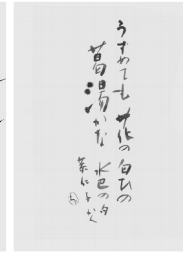 うすめても 花の 匂ひの
葛湯かな 水巴の句